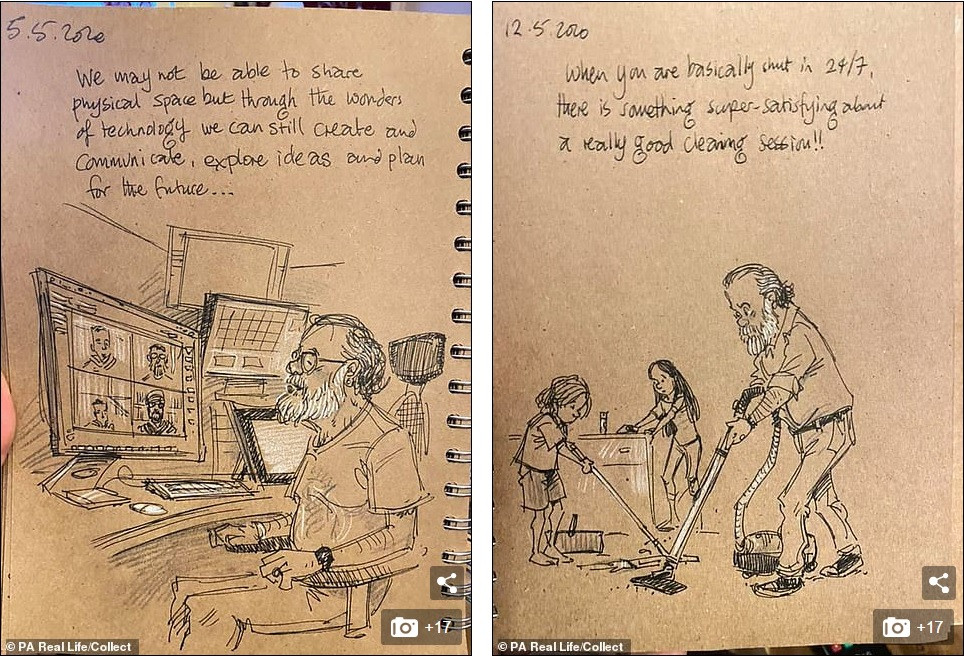 5.5.2020
We may not be able to share
physical space but through the wonders
of technology we can still create and
communicate, explore ideas and plan
for the future...
+17
© PA Real Life/Collect
12.5.2020
When you are basically shut in 24/7,
there is something super-satisfying about
a really good cleaning session!!
+17
© PA Real Life/Collect